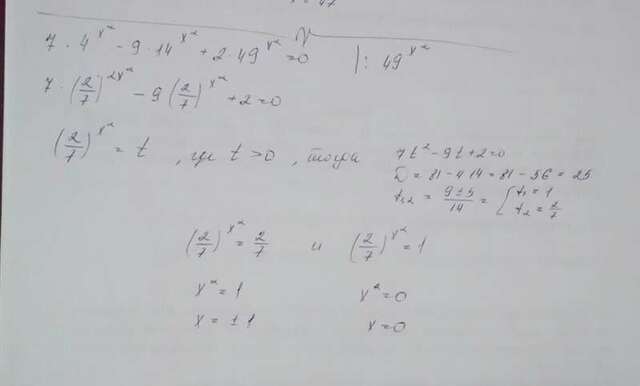 7 · 4^(x²) - 9 · 14^(x²) + 2 · 49^(x²) = 0 |: 49^(x²)
7 · (2/7)^(2x²) - 9 (2/7)^(x²) + 2 = 0
(2/7)^(x²) = t , где t > 0 , тогда 7t² - 9t + 2 = 0
D = 81 - 4·14 = 81 - 56 = 25
t₁,₂ = (9 ± 5)/14 = { t₁ = 1
t₂ = 2/7
(2/7)^(x²) = 2/7 и (2/7)^(x²) = 1
x² = 1 x² = 0
x = ± 1 x = 0